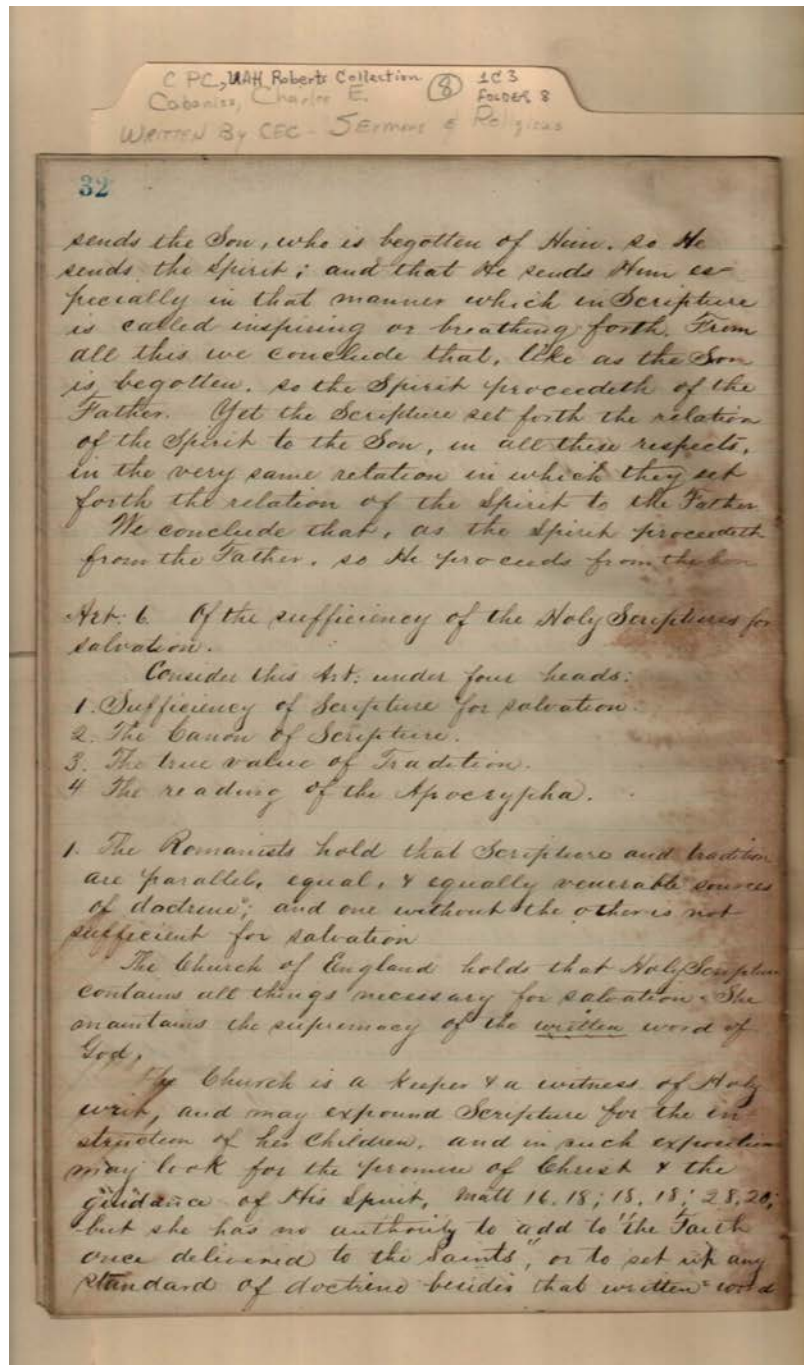 C PC, UAH Roberts Collection 8 1C3
Cabaniss, Charles E. FOLDER 8
WRITTEN By CEC - SERMONS & Religious
32
sends the Son, who is begotten of Him, so He
sends the Spirit; and that He sends Him es-
pecially in that manner which in Scripture
is called inspiring or breathing forth. From
all this we conclude that, like as the Son
is begotten, so the Spirit proceedeth of the
Father. Yet the Scripture set forth the relation
of the Spirit to the Son, in all these respects,
in the very same relation in which they set
forth the relation of the Spirit to the Father
We conclude that, as the Spirit proceedeth
from the Father, so He proceeds from the Son
Art: 6. Of the sufficiency of the Holy Scriptures for
salvation.
Consider this Art: under four heads:
1. Sufficiency of Scripture for salvation.
2. The Canon of Scripture.
3. The true value of Tradition.
4 The reading of the Apocrypha.
1. The Romanists hold that Scripture and tradition
are parallel, equal, & equally venerable sources
of doctrine; and one without the other is not
sufficient for salvation
The Church of England holds that Holy Scripture
contains all things necessary for salvation. She
maintains the supremacy of the written word of
God,
Church is a keeper & a witness of Holy
writ, and may expound Scripture for the in-
struction of her Children, and in such exposition
may look for the promise of Christ & the
guidance of His Spirit, Matt 16.18; 18.18; 28.20;
but she has no authority to add to "the Faith
once delivered to the Saints", or to set up any
standard of doctrine besides that written word